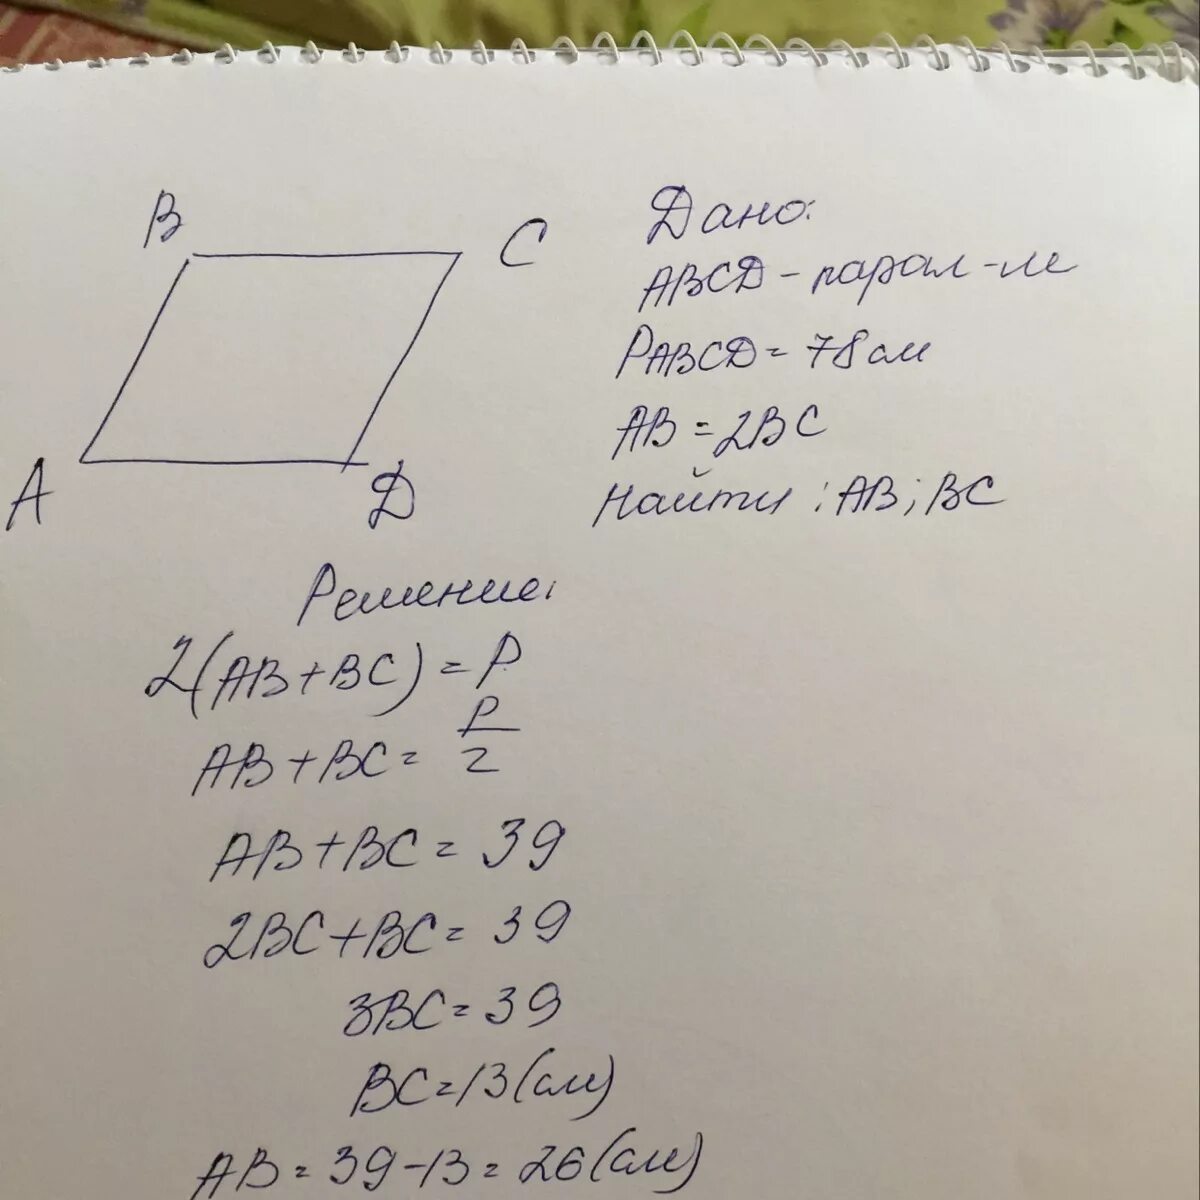 B
C
A
D
Дано:
ABCD - парал-м
PABCD = 78 см
AB = 2BC
Найти: AB; BC
Решение:
2(AB + BC) = P
AB + BC = P/2
AB + BC = 39
2BC + BC = 39
3BC = 39
BC = 13 (см)
AB = 39 - 13 = 26 (см)